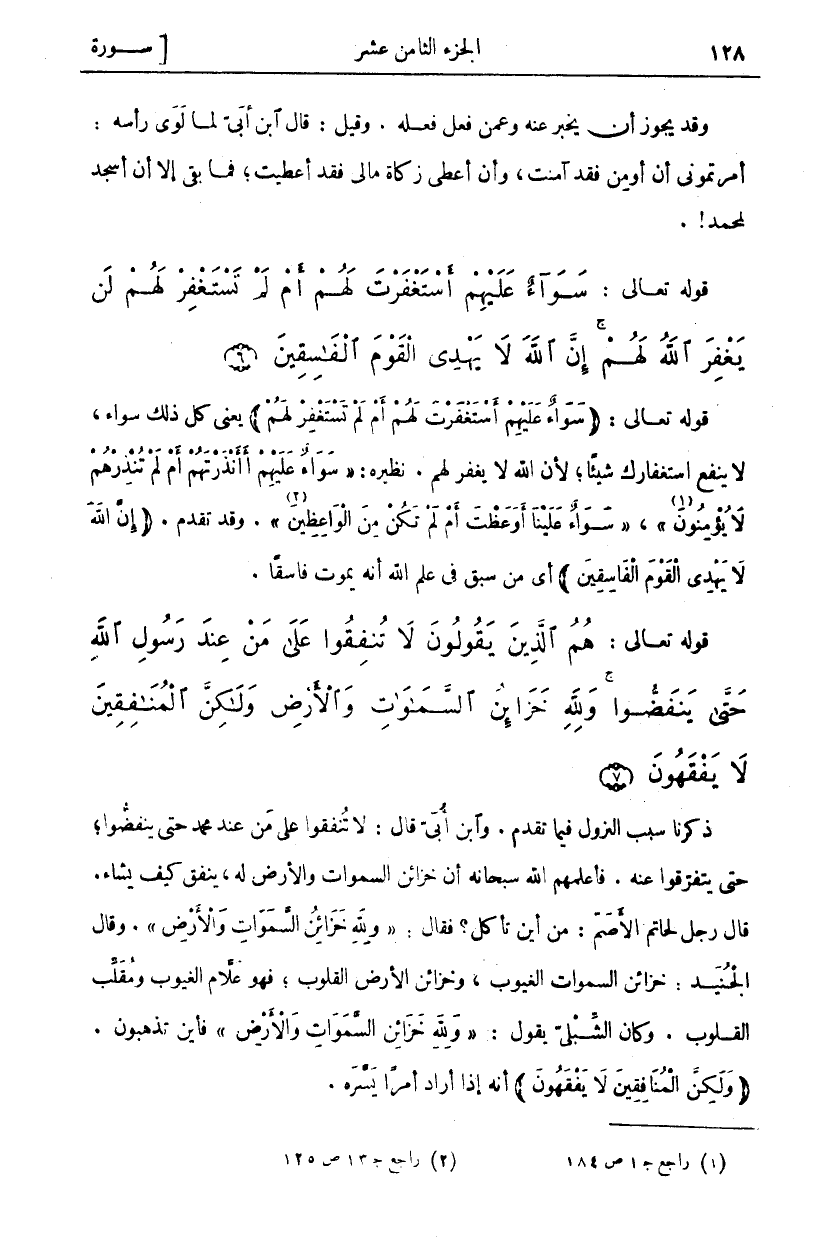 ١٢٨ الجزء الثامن عشر [ ســورة
وقد يجوز أن يخبر عنه وعمن فعل فعله . وقيل : قال ٱبن أُبَىّ لمــا لَوَى رأسه :
أمرتمونى أن أومن فقد آمنت ، وأن أعطى زكاة مالى فقد أعطيت ؛ فمــا بقى إلا أن أسجد
لمحمد ! .
قوله تعــالى : سَــوَآءٌ عَلَيْهِمْ أَسْتَغْفَرْتَ لَهُــمْ أَمْ لَمْ تَسْتَغْفِرْ لَهُــمْ لَن
يَغْفِرَ ٱللَّهُ لَهُــمْ ۚ إِنَّ ٱللَّهَ لَا يَهْدِى الْقَوْمَ ٱلْفَـٰسِقِينَ ﴿٦﴾
قوله تعــالى : ﴿ سَوَاءٌ عَلَيْهِمْ أَسْتَغْفَرْتَ لَهُمْ أَمْ لَمْ تَسْتَغْفِرْ لَهُمْ ﴾ يعنى كل ذلك سواء ،
لا ينفع استغفارك شيئًا ؛ لأن الله لا يغفر لهم . نظيره : « سَوَاءٌ عَلَيْهِمْ أَأَنْذَرْتَهُمْ أَمْ لَمْ تُنْذِرْهُمْ
لَا يُؤْمِنُونَ (١) » ، « سَــوَاءٌ عَلَيْنَا أَوَعَظْتَ أَمْ لَمْ تَكُنْ مِنَ الْوَاعِظِينَ (٢) » . وقد تقدم . ﴿ إِنَّ اللَّهَ
لَا يَهْدِى الْقَوْمَ الْفَاسِقِينَ ﴾ أى من سبق فى علم الله أنه يموت فاسقًا .
قوله تعــالى : هُمُ ٱلَّذِينَ يَقُولُونَ لَا تُنفِقُوا عَلَىٰ مَنْ عِندَ رَسُولِ ٱللَّهِ
حَتَّىٰ يَنفَضُّــوا ۚ وَلِلَّهِ خَزَآئِنُ ٱلسَّــمَـٰوَٰتِ وَٱلْأَرْضِ وَلَـٰكِنَّ ٱلْمُنَـٰفِقِينَ
لَا يَفْقَهُونَ ﴿٧﴾
ذكرنا سبب النزول فيما تقدم . وٱبن أُبَىّ قال : لا تُنفقوا على مَن عند محمد حتى ينفضُّوا ؛
حتى يتفرّقوا عنه . فأعلمهم الله سبحانه أن خزائن السموات والأرض له ، ينفق كيف يشاء .
قال رجل لحاتم الأَصَمّ : من أين تأكل ؟ فقال : « ولِلّهِ خَزَائِنُ السَّمَوَاتِ وَالْأَرْضِ » . وقال
الجُنَيــد : خزائن السموات الغيوب ، وخزائن الأرض القلوب ؛ فهو علّام الغيوب ومُقَلِّب
القــلوب . وكان الشِّبْلِىّ يقول : « وَلِلّهِ خَزَائِن السَّمَوَاتِ وَالْأَرْضِ » فأين تذهبون .
﴿ وَلَكِنَّ الْمُنَافِقِينَ لَا يَفْقَهُونَ ﴾ أنه إذا أراد أمرًا يَسَّرَه .
(١) راجع جـ ١ ص ١٨٤ (٢) راجع جـ ١٣ ص ١٢٥